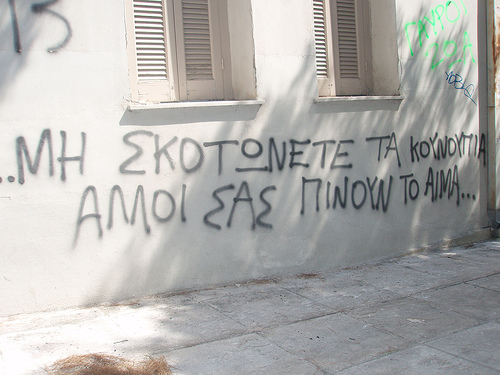 ..ΜΗ ΣΚΟΤΩΝΕΤΕ ΤΑ ΚΟΥΝΟΥΠΙΑ
ΑΜΟΙ ΣΑΣ ΠΙΝΟΥΝ ΤΟ ΑΙΜΑ...